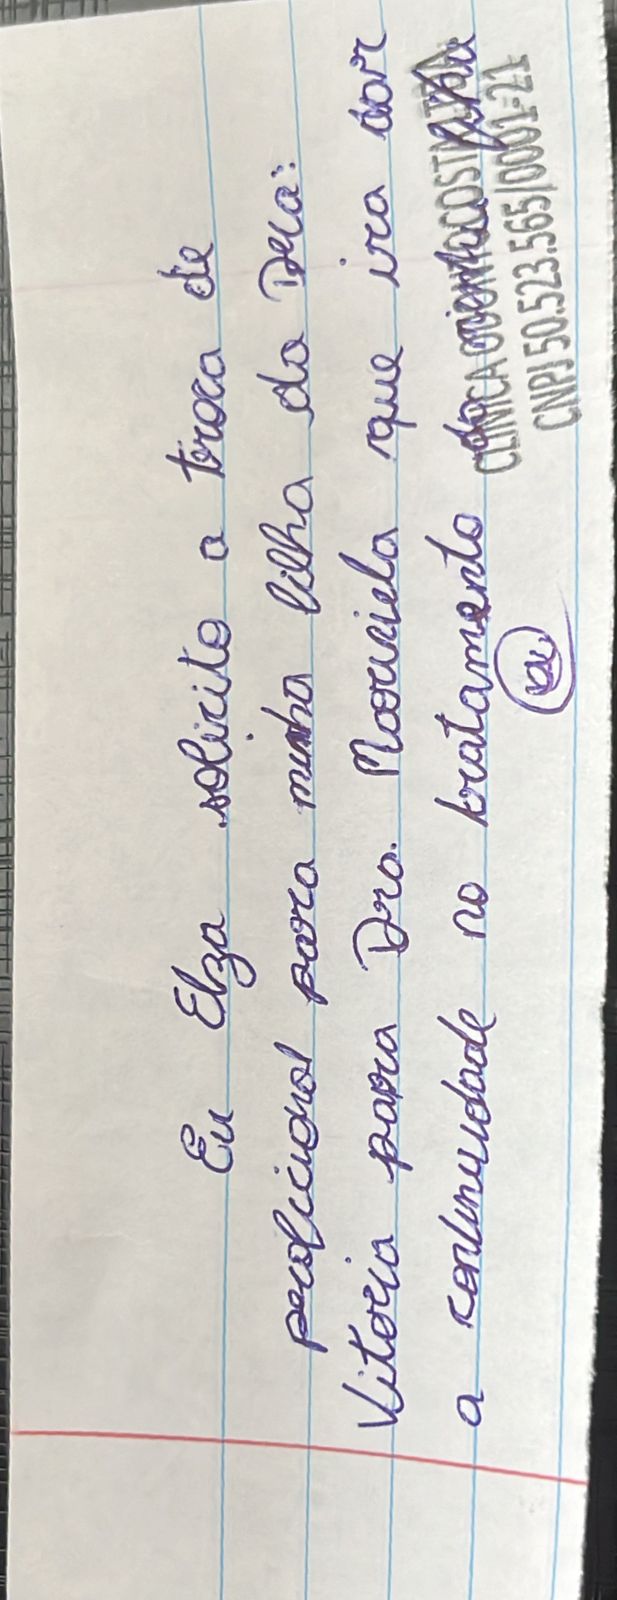 Eu Elza solicito a troca de
proficional para minha filha da Dra:
Vitoria para Dra. Marciela que ira dar
a continuidade no tratamento da minha filha
CLINICA
CNPJ 50.523.565/0001-21